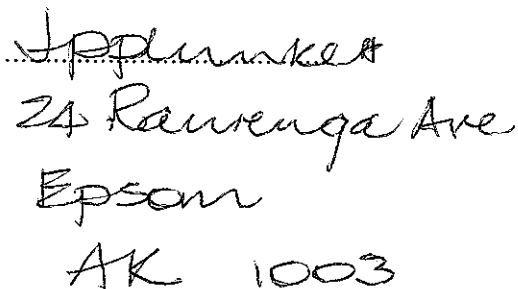 JPPlunkett
24 Rawrenga Ave
Epsom
AK 1003